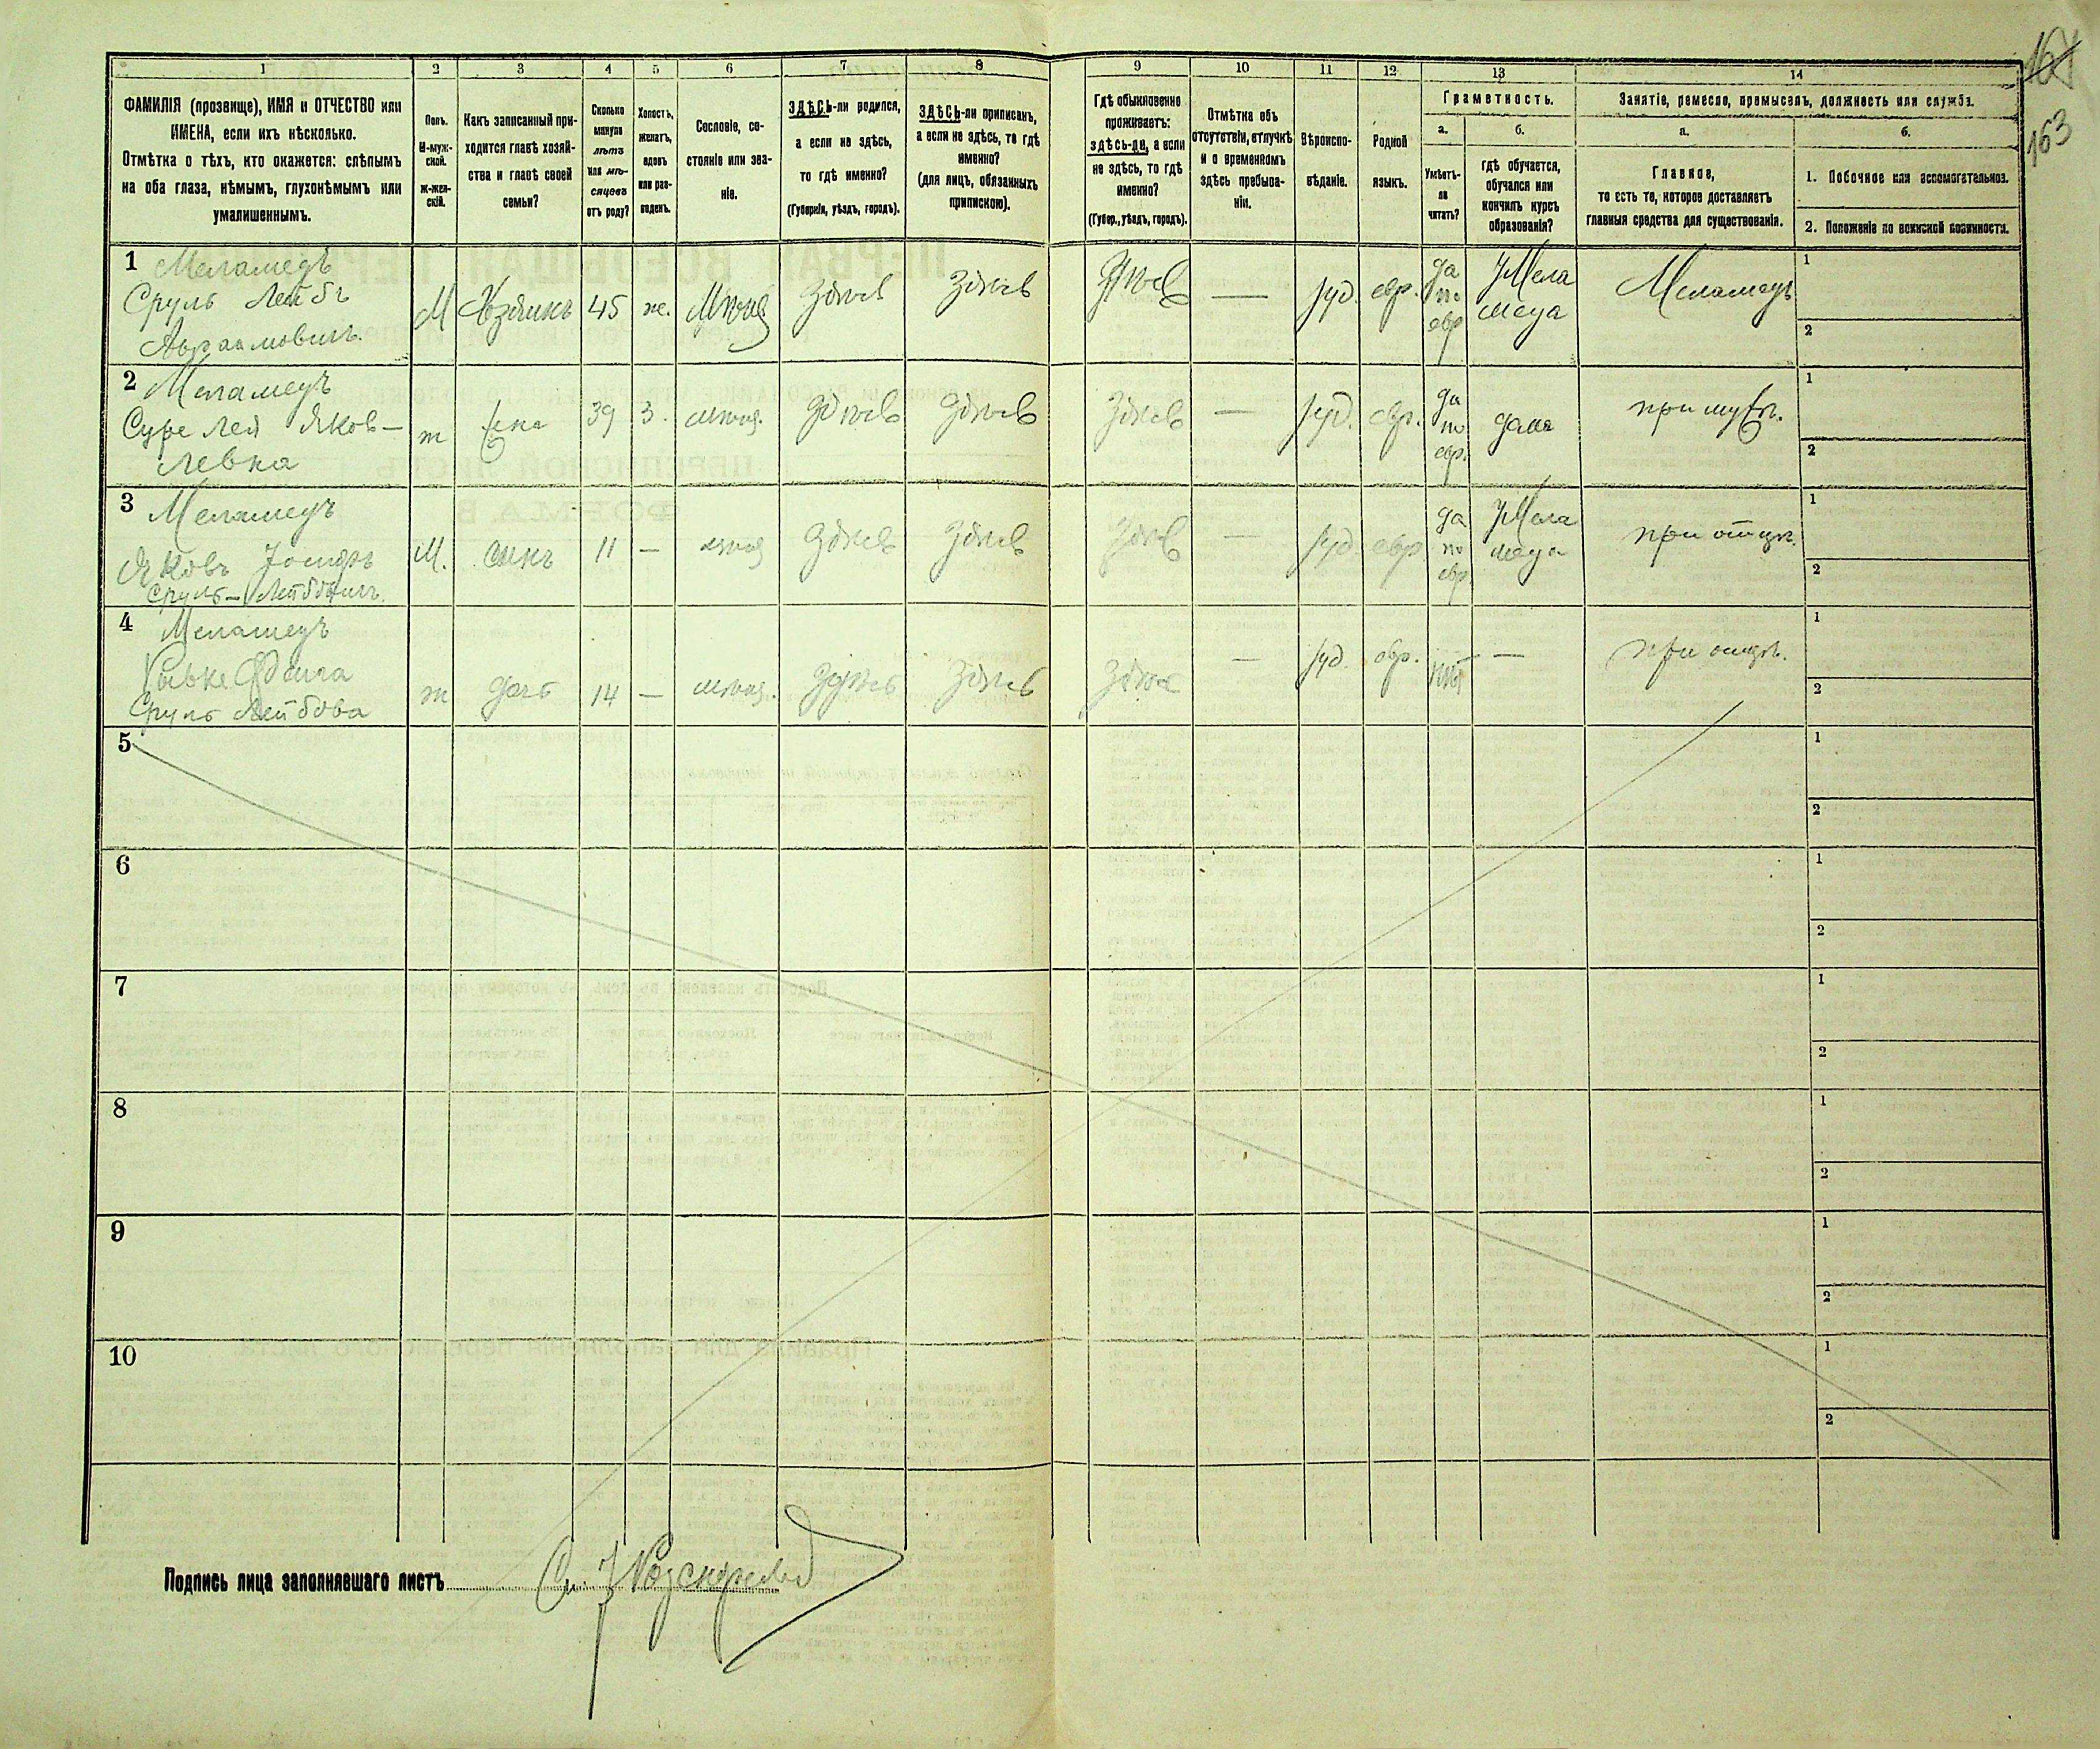 164
163
1 2 3 4 5 6 7 8 9 10 11 12 13 14
ФАМИЛІЯ (прозвище), ИМЯ и ОТЧЕСТВО или
ИМЕНА, если ихъ нѣсколько.
Отмѣтка о тѣхъ, кто окажется: слѣпымъ
на оба глаза, нѣмымъ, глухонѣмымъ или
умалишеннымъ.
Полъ.
М-муж-
ской.
ж-жен-
скій.
Какъ записанный при-
ходится главѣ хозяй-
ства и главѣ своей
семьи?
Сколько
минуло
лѣтъ
или мѣ-
сяцевъ
отъ роду?
Холостъ,
женатъ,
вдовъ
или раз-
веденъ.
Сословіе, со-
стояніе или зва-
ніе.
ЗДѢСЬ-ли родился,
а если не здѣсь,
то гдѣ именно?
(Губернія, уѣздъ, городъ).
ЗДѢСЬ-ли приписанъ,
а если не здѣсь, то гдѣ
именно?
(для лицъ, обязанныхъ
припискою).
Гдѣ обыкновенно
проживаетъ:
здѣсь-ли, а если
не здѣсь, то гдѣ
именно?
(Губер., уѣздъ, городъ).
Отмѣтка объ
отсутствіи, отлучкѣ
и о временномъ
здѣсь пребыва-
ніи.
Вѣроиспо-
вѣданіе.
Родной
языкъ.
Грамотность.
а.
Умѣетъ-
ли
читать?
б.
гдѣ обучается,
обучался или
кончилъ курсъ
образованія?
Занятіе, ремесло, промыселъ, должность или служба.
а.
Главное,
то есть то, которое доставляетъ
главныя средства для существованія.
б.
1. Побочное или вспомогательное.
2. Положеніе по воинской повинности.
1 Меламедъ
Сруль Лейбъ
Авраамовичъ.
М Хозяинъ 45 же. здѣсь здѣсь здѣсь — іуд. евр. да по евр У Мела меда Меламедъ
1
2
2 Меламедъ
Суре Лея Яков-
левна
ж жена 39 з. здѣсь здѣсь здѣсь — іуд. евр. да по евр. дома при мужѣ.
1
2
3 Меламедъ
Яковъ Іосифъ
Сруль-Лейбовичъ.
М. сынъ 11 — здѣсь здѣсь здѣсь — іуд. евр да по евр. У Мела меда при отцѣ.
1
2
4 Меламедъ
Рывке Фейга
Сруль Лейбова
ж дочь 14 — здѣсь здѣсь здѣсь — іуд. евр. нѣт — при отцѣ.
1
2
5
1
2
6
1
2
7
1
2
8
1
2
9
1
2
10
1
2
Подпись лица заполнявшаго листъ